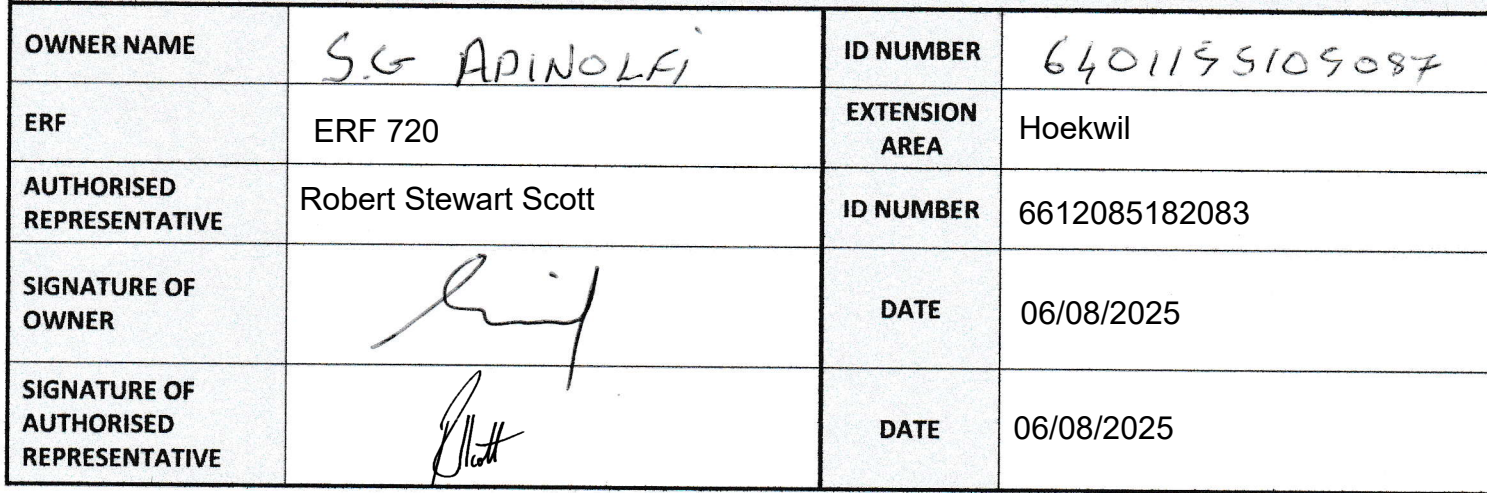 OWNER NAME S.G ADINOLFi ID NUMBER 6401155105087
ERF ERF 720 EXTENSION AREA Hoekwil
AUTHORISED REPRESENTATIVE Robert Stewart Scott ID NUMBER 6612085182083
SIGNATURE OF OWNER DATE 06/08/2025
SIGNATURE OF AUTHORISED REPRESENTATIVE DATE 06/08/2025